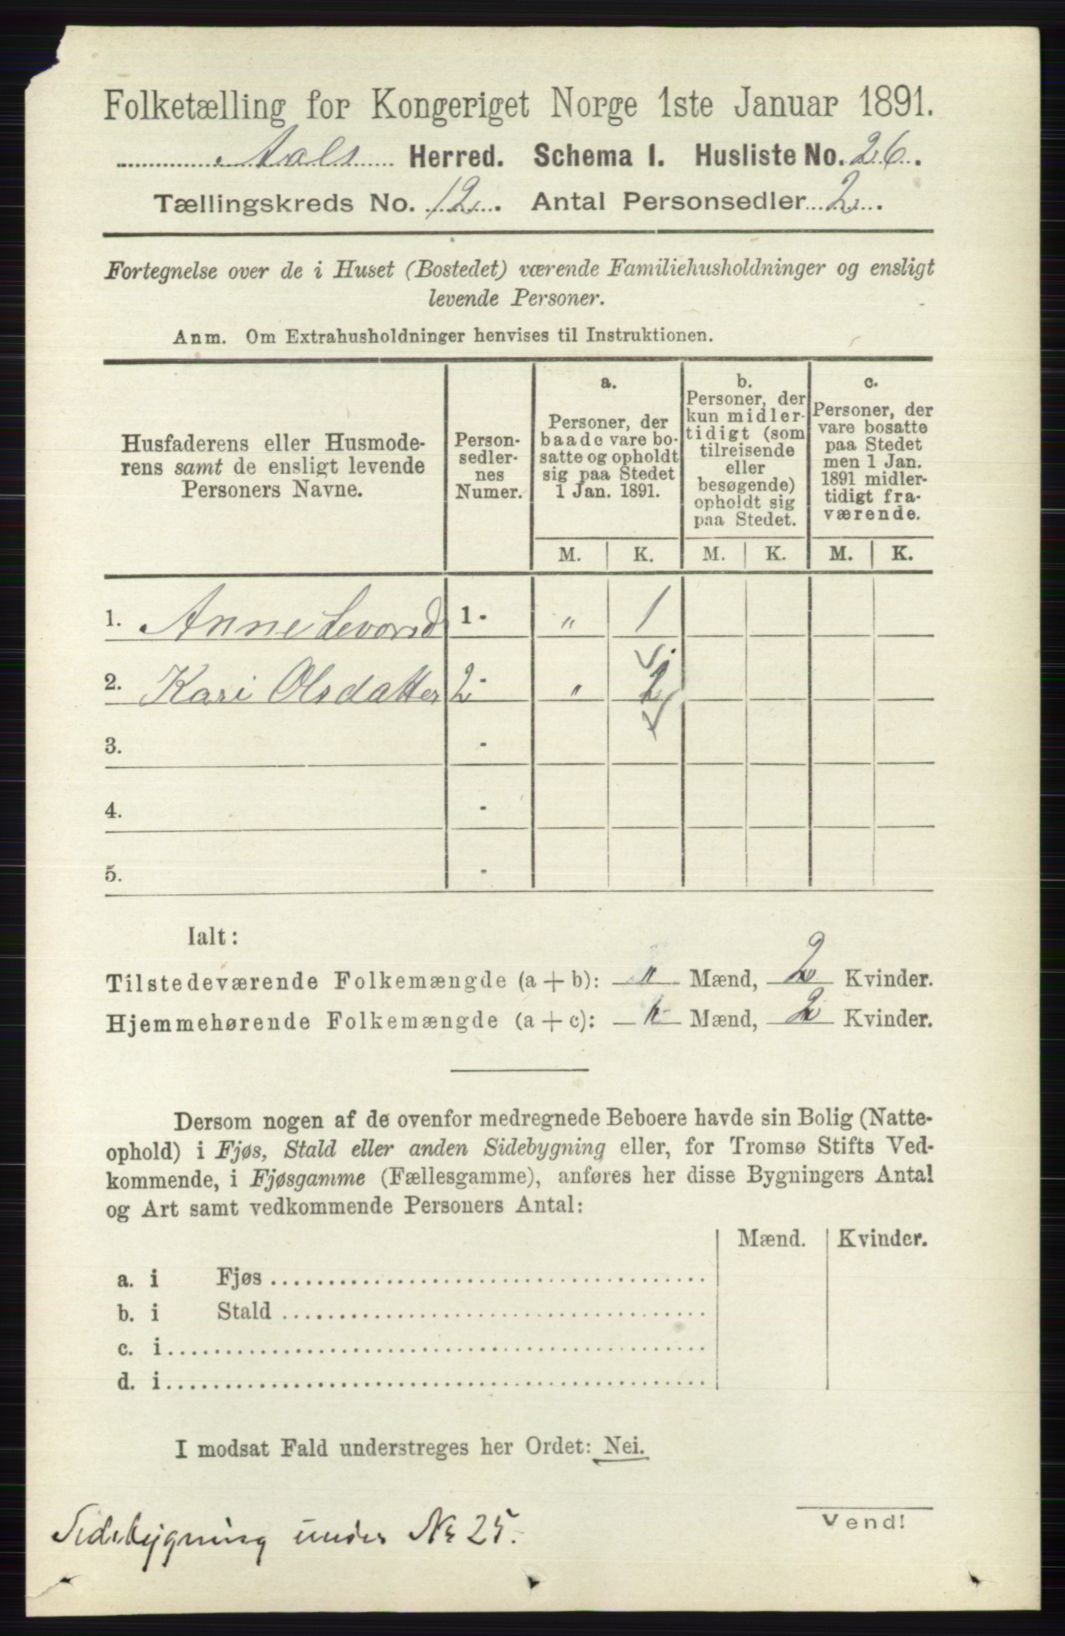 Folketælling for Kongeriget Norge 1ste Januar 1891.
Aals Herred. Schema I. Husliste No. 26.
Tællingskreds No. 12. Antal Personsedler 2.
Fortegnelse over de i Huset (Bostedet) værende Familiehusholdninger og ensligt
levende Personer.
Anm. Om Extrahusholdninger henvises til Instruktionen.
Husfaderens eller Husmode-
rens samt de ensligt levende
Personers Navne.
Person-
sedler-
nes
Numer.
a.
Personer, der
baade vare bo-
satte og opholdt
sig paa Stedet
1 Jan. 1891.
b.
Personer, der
kun midler-
tidigt (som
tilreisende
eller
besøgende)
opholdt sig
paa Stedet.
c.
Personer, der
vare bosatte
paa Stedet
men 1 Jan.
1891 midler-
tidigt fra-
værende.
M. K. M. K. M. K.
1. Anne Levorsd 1- " 1
2. Kari Olsdatter 2- " 2
3. -
4. -
5. -
Ialt:
Tilstedeværende Folkemængde (a + b): " Mænd, 2 Kvinder.
Hjemmehørende Folkemængde (a + c): " Mænd, 2 Kvinder.
Dersom nogen af de ovenfor medregnede Beboere havde sin Bolig (Natte-
ophold) i Fjøs, Stald eller anden Sidebygning eller, for Tromsø Stifts Ved-
kommende, i Fjøsgamme (Fællesgamme), anføres her disse Bygningers Antal
og Art samt vedkommende Personers Antal:
Mænd. Kvinder.
a. i Fjøs
b. i Stald
c. i
d. i
I modsat Fald understreges her Ordet: Nei.
Vend!
Sidebygning under No 25.